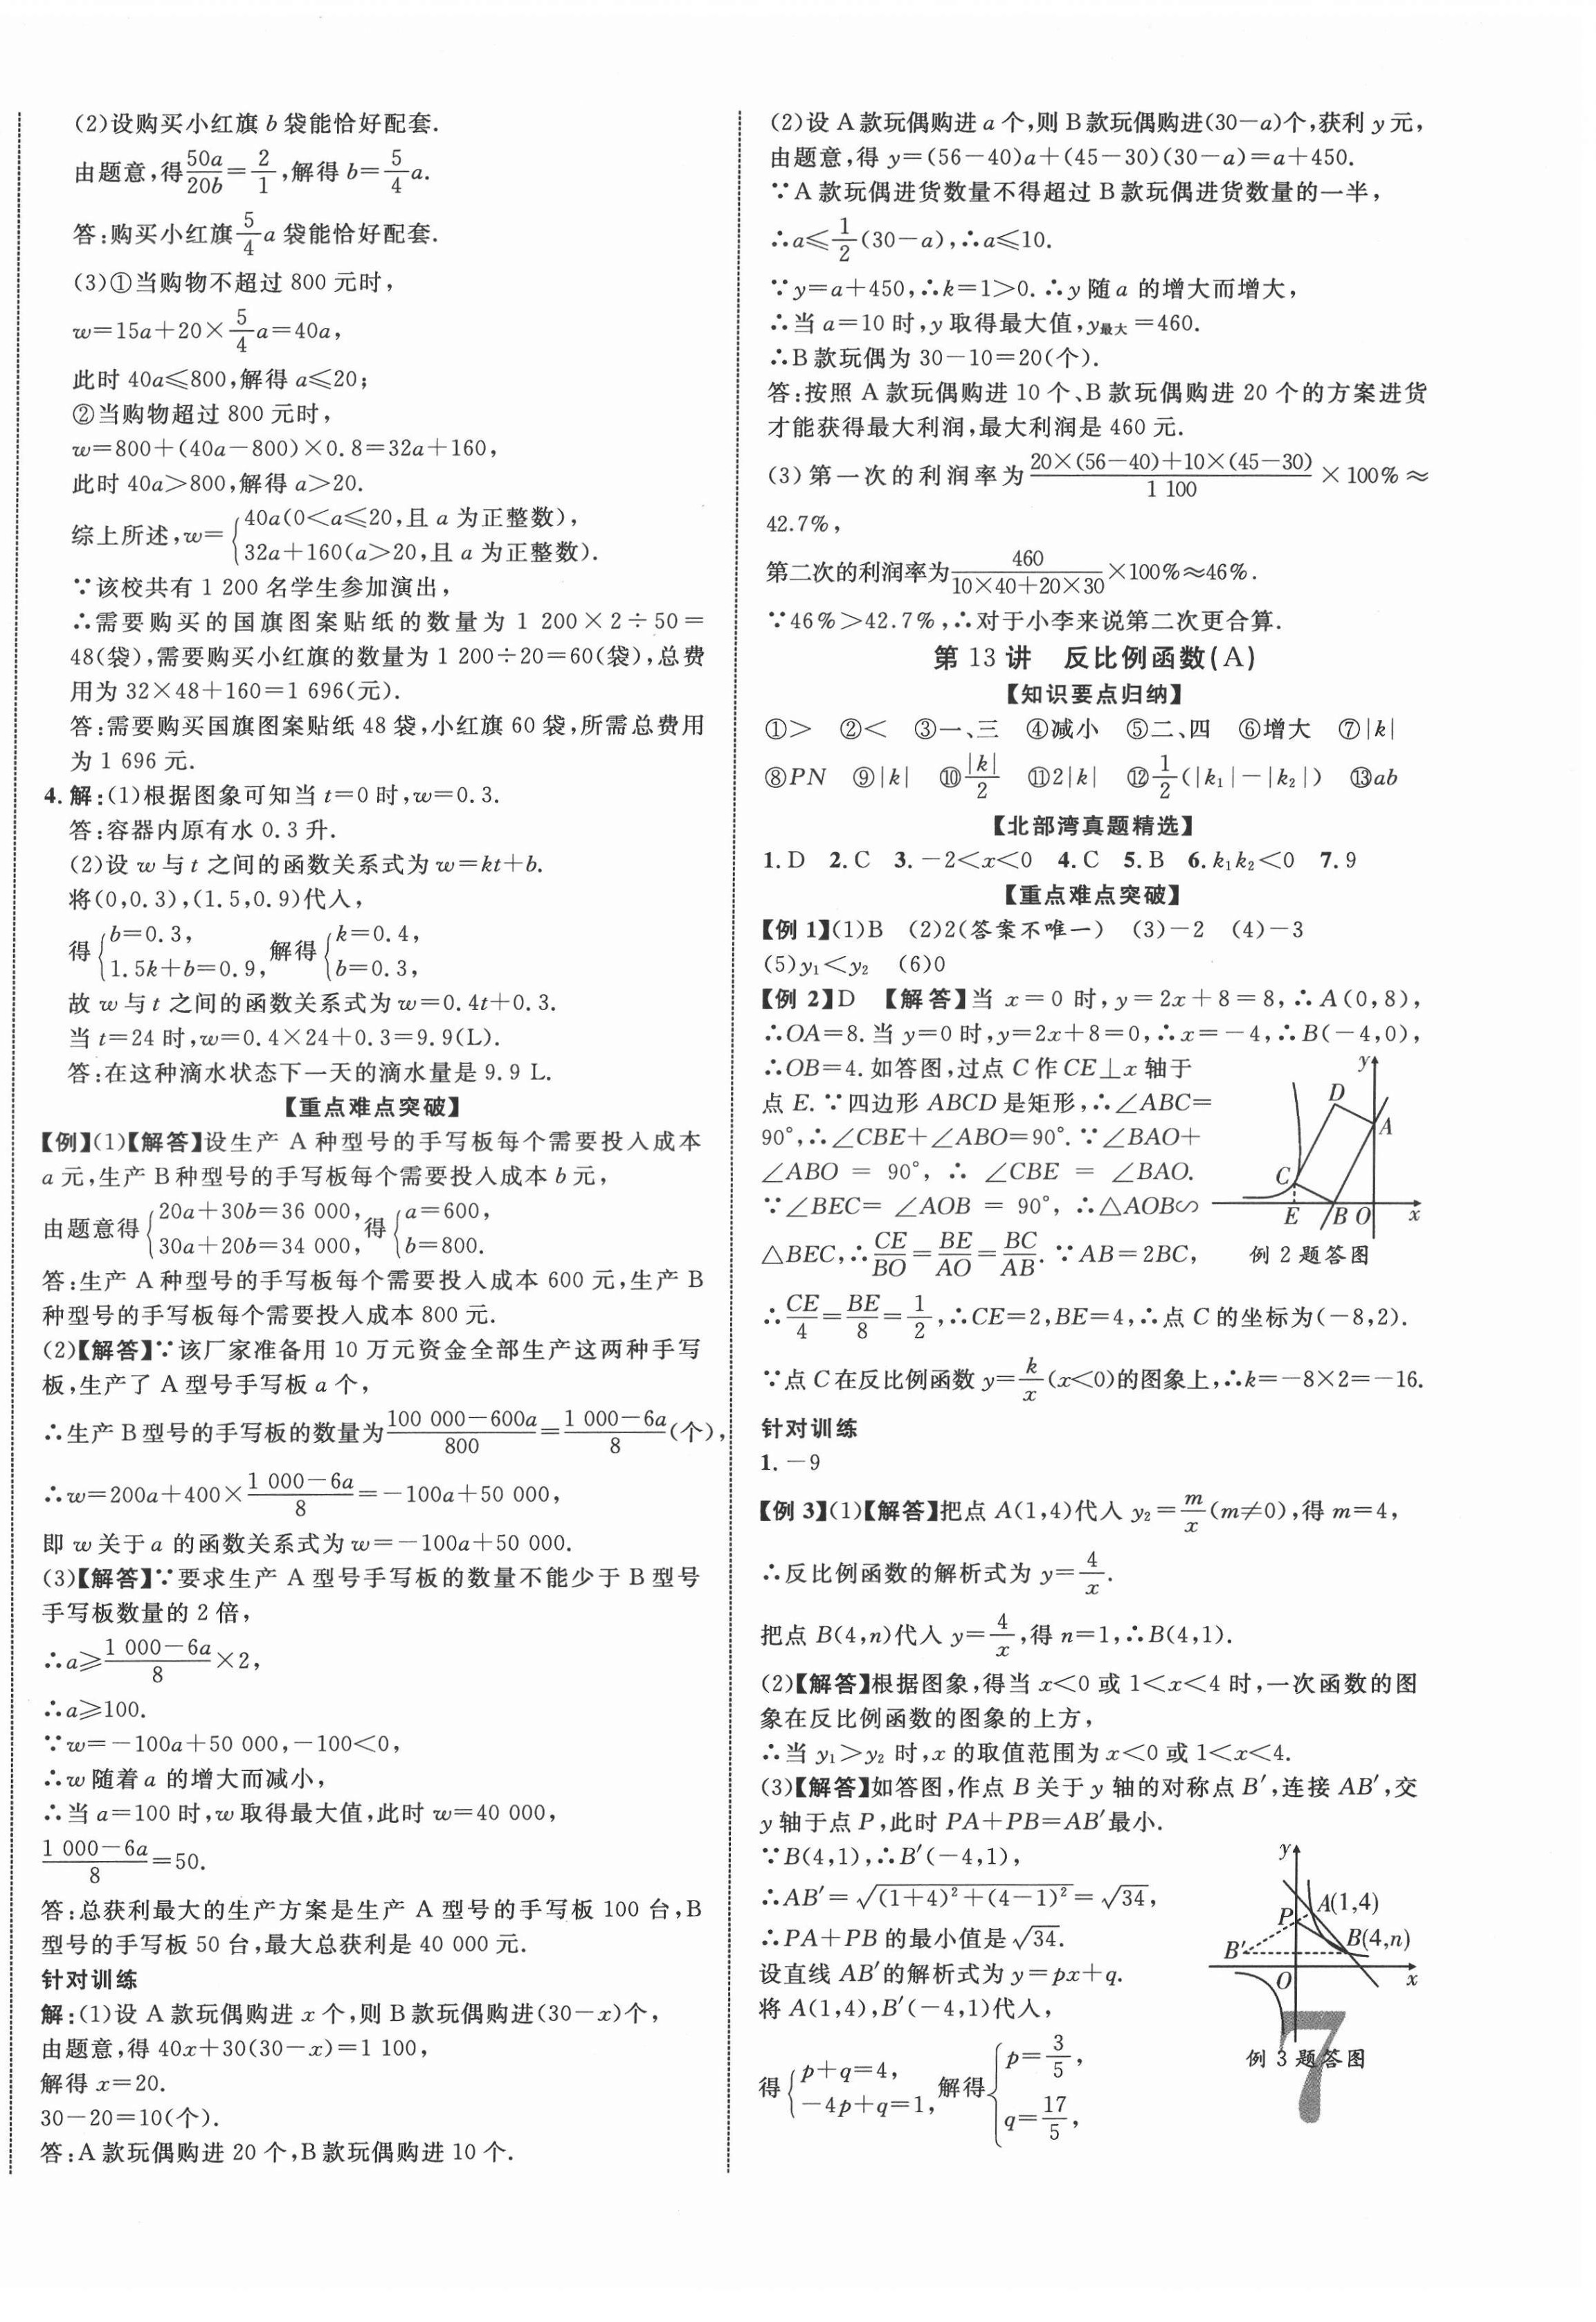 (2)设购买小红旗 b 袋能恰好配套.
由题意,得50a/20b=2/1,解得 b=5/4a.
答:购买小红旗5/4a 袋能恰好配套.
(3)①当购物不超过 800 元时,
w=15a+20×5/4a=40a,
此时 40a≤800,解得 a≤20;
②当购物超过 800 元时,
w=800+(40a-800)×0.8=32a+160,
此时 40a>800,解得 a>20.
综上所述,w={40a(0<a≤20,且 a 为正整数),
32a+160(a>20,且 a 为正整数).
∵该校共有 1 200 名学生参加演出,
∴需要购买的国旗图案贴纸的数量为 1 200×2÷50=
48(袋),需要购买小红旗的数量为 1 200÷20=60(袋),总费
用为 32×48+160=1 696(元).
答:需要购买国旗图案贴纸 48 袋,小红旗 60 袋,所需总费用
为 1 696 元.
4.解:(1)根据图象可知当 t=0 时,w=0.3.
答:容器内原有水 0.3 升.
(2)设 w 与 t 之间的函数关系式为 w=kt+b.
将(0,0.3),(1.5,0.9)代入,
得{b=0.3, 1.5k+b=0.9, 解得{k=0.4, b=0.3,
故 w 与 t 之间的函数关系式为 w=0.4t+0.3.
当 t=24 时,w=0.4×24+0.3=9.9(L).
答:在这种滴水状态下一天的滴水量是 9.9 L.
【重点难点突破】
【例】(1)【解答】设生产 A 种型号的手写板每个需要投入成本
a 元,生产 B 种型号的手写板每个需要投入成本 b 元,
由题意得{20a+30b=36 000, 30a+20b=34 000, 得{a=600, b=800.
答:生产 A 种型号的手写板每个需要投入成本 600 元,生产 B
种型号的手写板每个需要投入成本 800 元.
(2)【解答】∵该厂家准备用 10 万元资金全部生产这两种手写
板,生产了 A 型号手写板 a 个,
∴生产 B 型号的手写板的数量为(100 000-600a)/800=(1 000-6a)/8(个),
∴w=200a+400×(1 000-6a)/8=-100a+50 000,
即 w 关于 a 的函数关系式为 w=-100a+50 000.
(3)【解答】∵要求生产 A 型号手写板的数量不能少于 B 型号
手写板数量的 2 倍,
∴a≥(1 000-6a)/8×2,
∴a≥100.
∵w=-100a+50 000,-100<0,
∴w 随着 a 的增大而减小,
∴当 a=100 时,w 取得最大值,此时 w=40 000,
(1 000-6a)/8=50.
答:总获利最大的生产方案是生产 A 型号的手写板 100 台,B
型号的手写板 50 台,最大总获利是 40 000 元.
针对训练
解:(1)设 A 款玩偶购进 x 个,则 B 款玩偶购进(30-x)个,
由题意,得 40x+30(30-x)=1 100,
解得 x=20.
30-20=10(个).
答:A 款玩偶购进 20 个,B 款玩偶购进 10 个.
(2)设 A 款玩偶购进 a 个,则 B 款玩偶购进(30-a)个,获利 y 元,
由题意,得 y=(56-40)a+(45-30)(30-a)=a+450.
∵A 款玩偶进货数量不得超过 B 款玩偶进货数量的一半,
∴a≤1/2(30-a),∴a≤10.
∵y=a+450,∴k=1>0.∴y 随 a 的增大而增大,
∴当 a=10 时,y 取得最大值,y最大=460.
∴B 款玩偶为 30-10=20(个).
答:按照 A 款玩偶购进 10 个、B 款玩偶购进 20 个的方案进货
才能获得最大利润,最大利润是 460 元.
(3)第一次的利润率为(20×(56-40)+10×(45-30))/1 100×100%≈
42.7%,
第二次的利润率为460/(10×40+20×30)×100%≈46%.
∵46%>42.7%,∴对于小李来说第二次更合算.
第 13 讲 反比例函数(A)
【知识要点归纳】
①> ②< ③一、三 ④减小 ⑤二、四 ⑥增大 ⑦|k|
⑧PN ⑨|k| ⑩|k|/2 ⑪2|k| ⑫1/2(|k₁|-|k₂|) ⑬ab
【北部湾真题精选】
1.D 2.C 3.-2<x<0 4.C 5.B 6.k₁k₂<0 7.9
【重点难点突破】
【例 1】(1)B (2)2(答案不唯一) (3)-2 (4)-3
(5)y₁<y₂ (6)0
【例 2】D 【解答】当 x=0 时,y=2x+8=8,∴A(0,8),
∴OA=8.当 y=0 时,y=2x+8=0,∴x=-4,∴B(-4,0),
∴OB=4.如答图,过点 C 作 CE⊥x 轴于
点 E.∵四边形 ABCD 是矩形,∴∠ABC=
90°,∴∠CBE+∠ABO=90°.∵∠BAO+
∠ABO=90°,∴∠CBE=∠BAO.
∵∠BEC=∠AOB=90°,∴△AOB∽
△BEC,∴CE/BO=BE/AO=BC/AB.∵AB=2BC,
y
D
A
C
E B O x
例 2 题答图
∴CE/4=BE/8=1/2,∴CE=2,BE=4,∴点 C 的坐标为(-8,2).
∵点 C 在反比例函数 y=k/x(x<0)的图象上,∴k=-8×2=-16.
针对训练
1.-9
【例 3】(1)【解答】把点 A(1,4)代入 y₂=m/x(m≠0),得 m=4,
∴反比例函数的解析式为 y=4/x.
把点 B(4,n)代入 y=4/x,得 n=1,∴B(4,1).
(2)【解答】根据图象,得当 x<0 或 1<x<4 时,一次函数的图
象在反比例函数的图象的上方,
∴当 y₁>y₂ 时,x 的取值范围为 x<0 或 1<x<4.
(3)【解答】如答图,作点 B 关于 y 轴的对称点 B′,连接 AB′,交
y 轴于点 P,此时 PA+PB=AB′最小.
∵B(4,1),∴B′(-4,1),
∴AB′=√((1+4)²+(4-1)²)=√34,
∴PA+PB 的最小值是√34.
设直线 AB′的解析式为 y=px+q.
将 A(1,4),B′(-4,1)代入,
得{p+q=4, -4p+q=1, 解得{p=3/5, q=17/5,
y
A(1,4)
P
B(4,n)
B′
O x
例 3 题答图
7